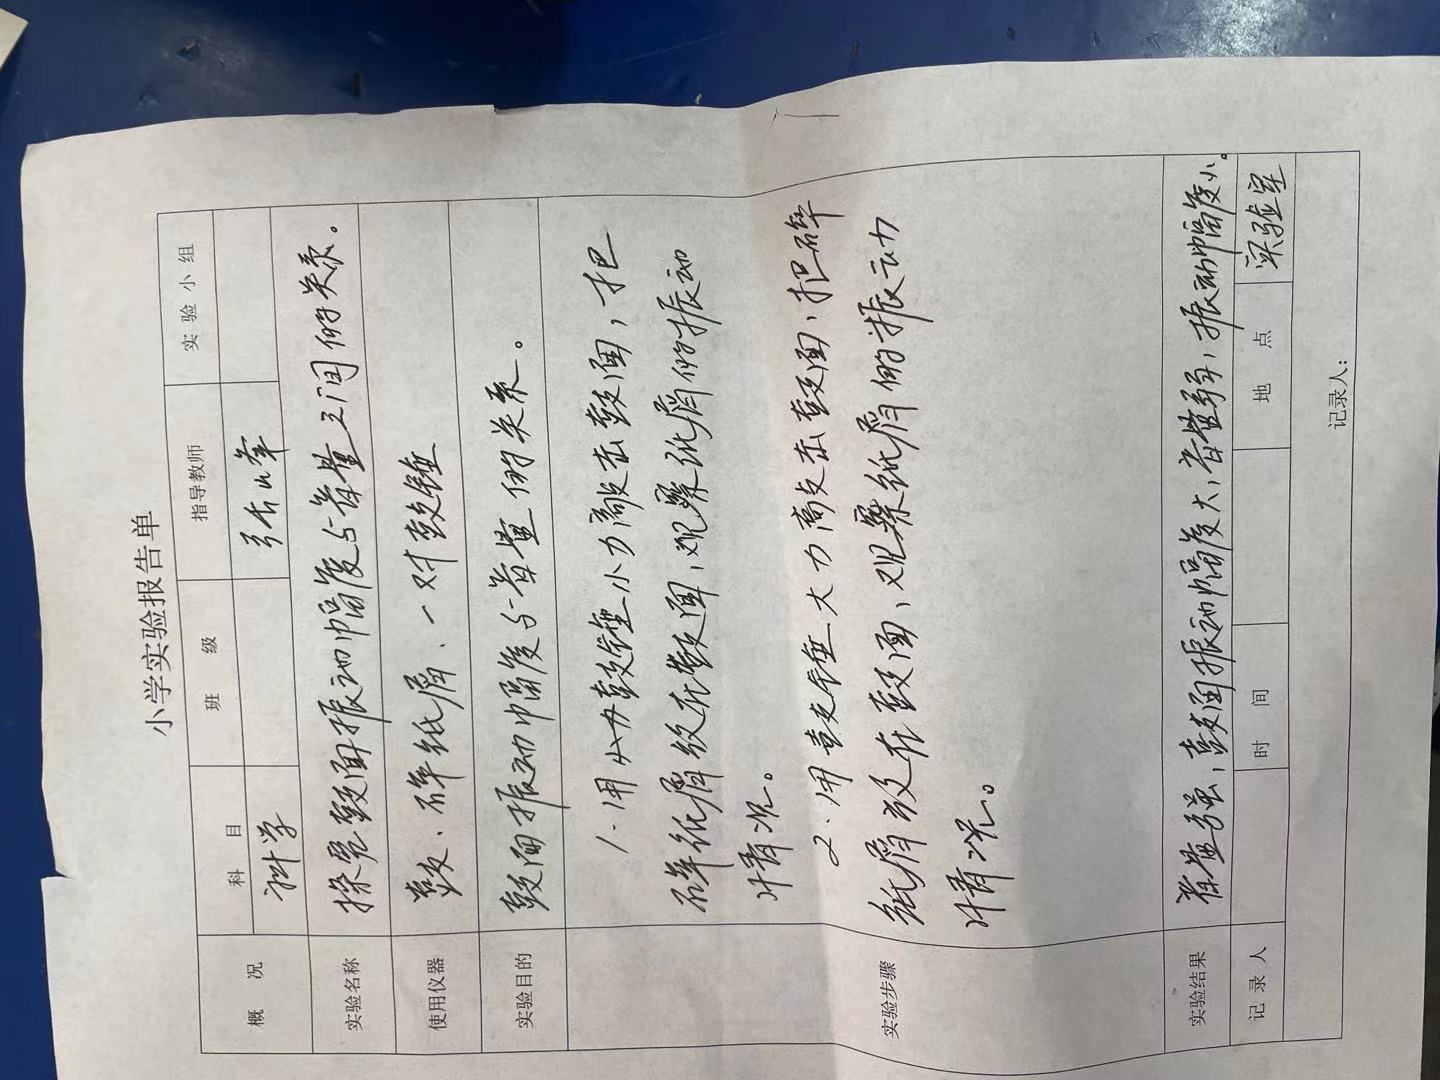 小学实验报告单
概 况 科 目 班 级 指导教师 实 验 小 组
科学 张山峰
实验名称 探究鼓面振动幅度与音量之间的关系。
使用仪器 鼓、碎纸屑、一对鼓锤
实验目的 鼓面振动幅度与音量的关系。
实验步骤
1.用鼓锤小力敲击鼓面,把
碎纸屑放在鼓面,观察纸屑的振动
情况。
2.用鼓锤大力敲击鼓面,把碎
纸屑放在鼓面,观察纸屑的振动
情况。
实验结果 音量强,鼓面振动幅度大,音量弱,振动幅度小。
记 录 人 时 间 地 点 实验室
记录人: